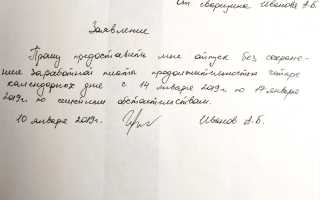 от сварщика Иванова А.Б.
Заявление
Прошу предоставить мне отпуск без сохране-
ния заработной платы продолжительностью четыре
календарных дне с 14 января 2019г по 17 января
2019г по семейным обстоятельствам.
10 января 2019г. Иванов А.Б.